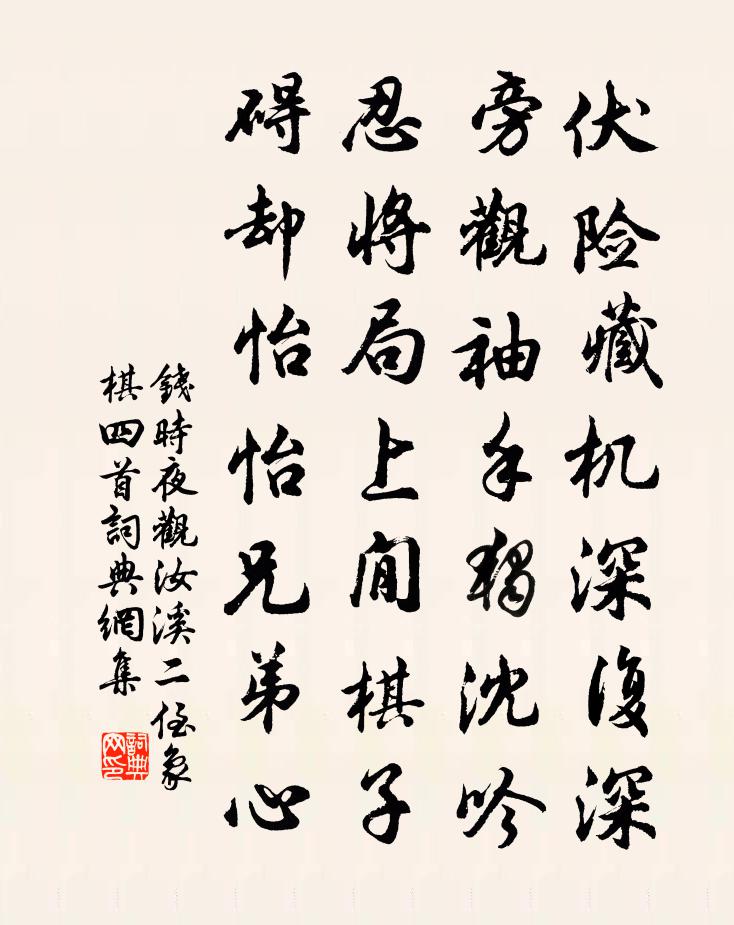 伏险藏机深復深
旁觀袖手獨沈吟
忍將局上閒棋子
碍却怡怡兄弟心
錢時夜觀汝溪二侄象
棋四首詞典網集
詞典网印